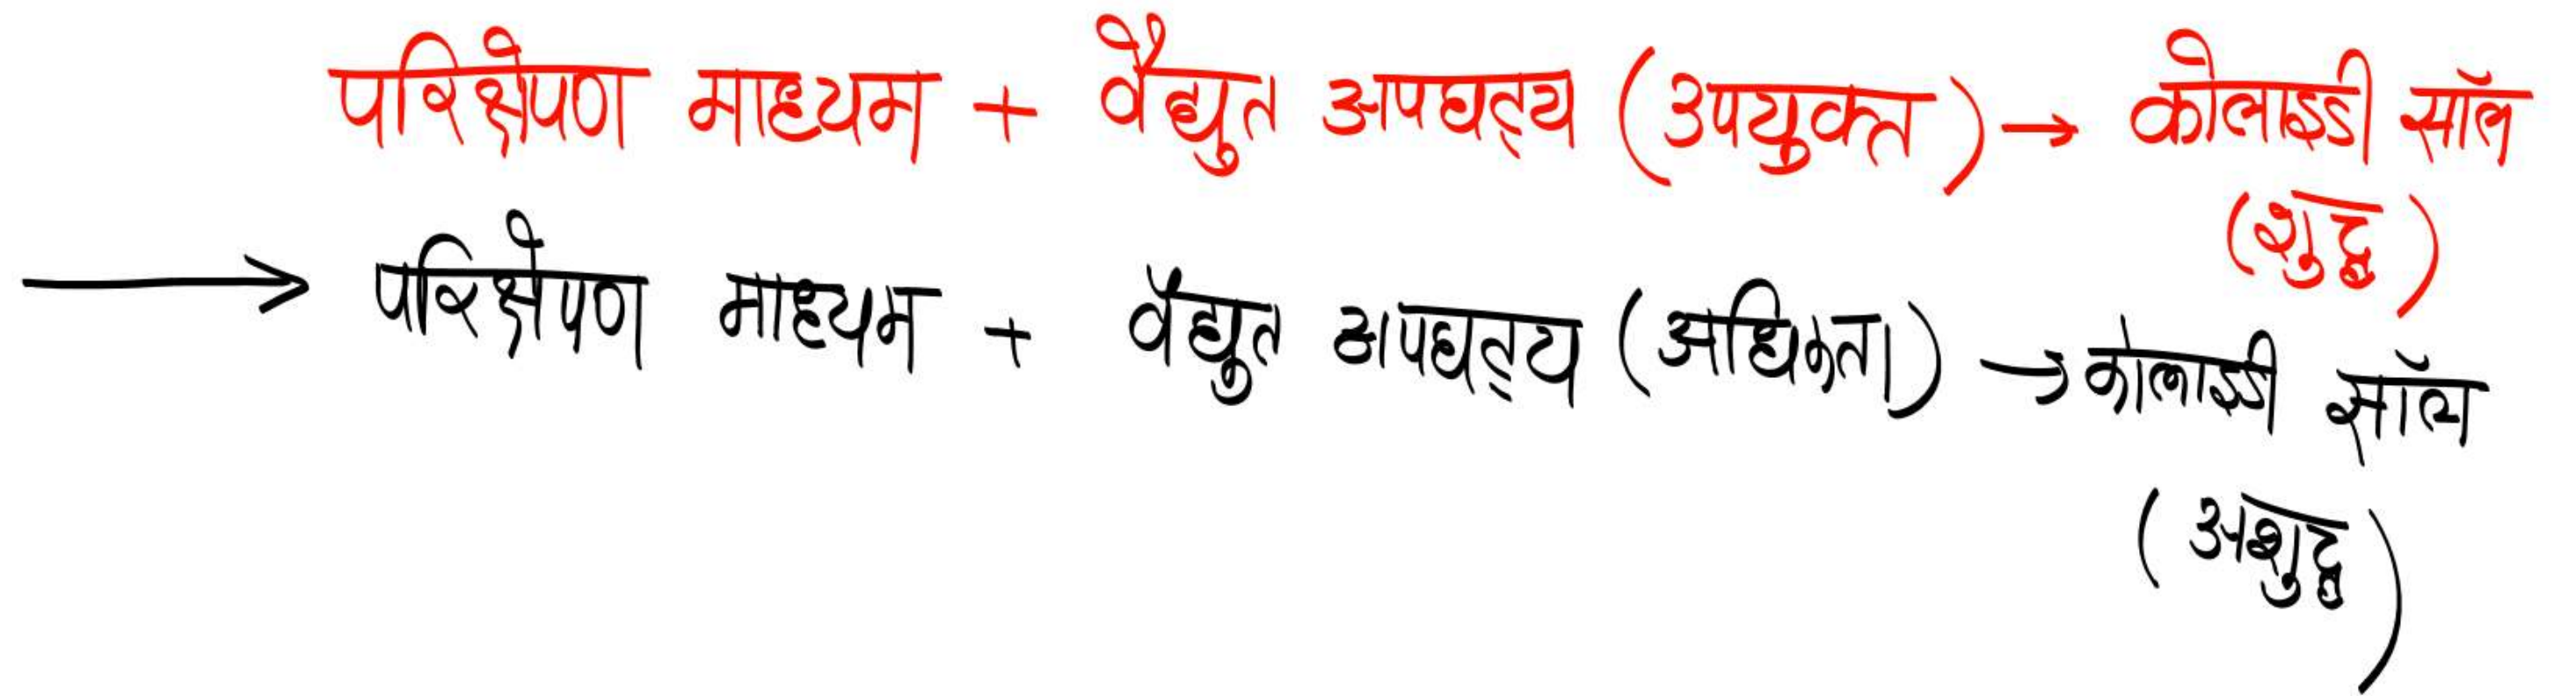 परिक्षेपण माध्यम + वैद्युत अपघट्य (उपयुक्त) → कोलाइडी सॉल
(शुद्ध)
→ परिक्षेपण माध्यम + वैद्युत अपघट्य (अधिकता) → कोलाइडी सॉल
(अशुद्ध)